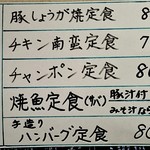 豚しょうが焼定食 8
チキン南蛮定食 7
チャンポン定食 80
焼魚定食(サバ) 豚汁付
みそ汁なら
手造り
ハンバーグ定食 80